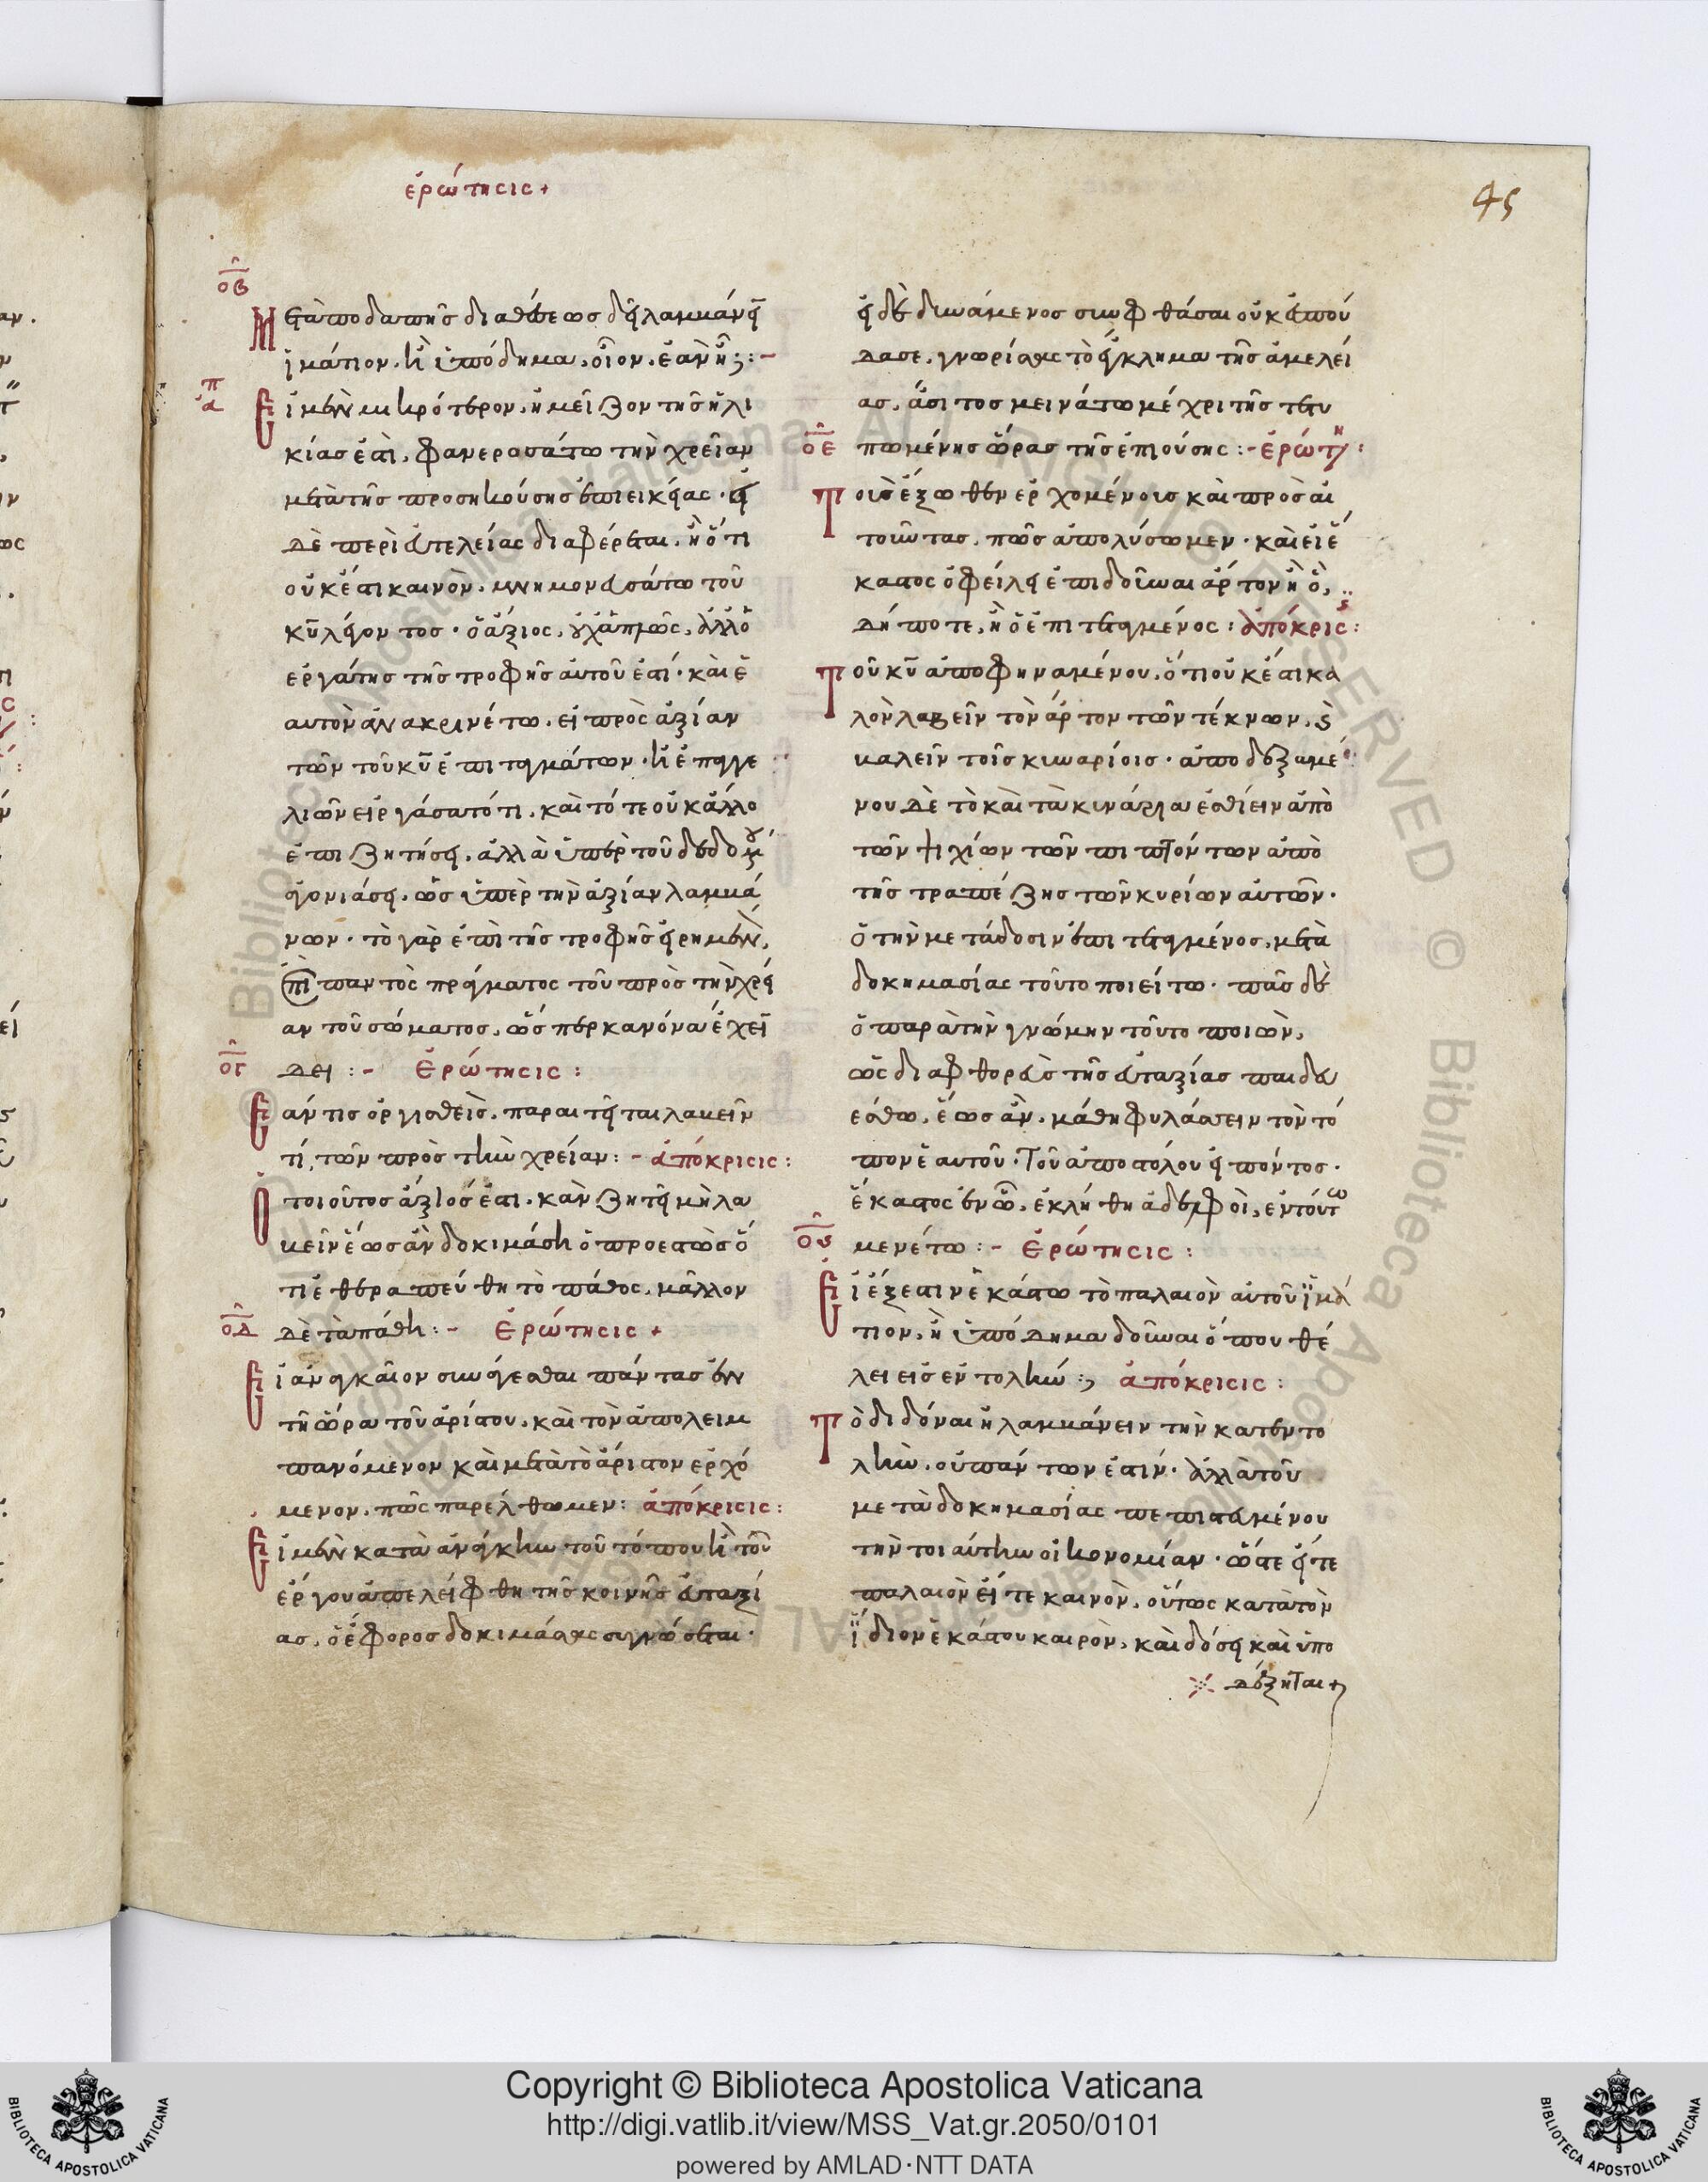 ἐρώτησις +
45
οβ
Μετὰ ποδαπῆς διαθέσεως δεῖ λαμβάνειν
ἱμάτιον. ἢ ὑπόδημα. οἷον. ἐὰν ἦ; :-
Εἰ μὲν μικρότερον. ἢ μεῖζον τῆς ἡλι
κίας ἐστὶ, φανερωσάτω τὴν χρείαν
μετὰ τῆς προσηκούσης ἐπιεικείας. εἰ
δὲ περὶ εὐτελείας διαφέρεται. ἢ ὅτι
οὐκ ἔστι καινὸν. μνημονευσάτω τοῦ
κυ λέγοντος. ὁ ἄξιος, οὐχ ἁπλῶς, ἀλλ' ὁ
ἐργάτης τῆς τροφῆς αὐτοῦ ἐστί. καὶ ἑ
αυτὸν ἀνακρινέτω. εἰ πρὸς ἀξίαν
τῶν τοῦ κυ ἐπιταγμάτων. ἢ ἐπαγγε
λιῶν εἰργάσατό τι. καὶ τότε οὐκ ἄλλο
ἐπιζητήσει. ἀλλὰ ὑπὲρ τοῦ δεδομ
ἀγονιάσει. ὡς ὑπὲρ τὴν ἀξίαν λαμβά
νων. τὸ γὰρ ἐπὶ τῆς τροφῆς εἰρημέν,
ἐπὶ παντὸς πράγματος τοῦ πρὸς τὴν χρεί
αν τοῦ σώματος, ὥσπερ κανόνα ἔχειν
ογ δει :- Ἐρώτησις :
Ἐάν τις ὀργισθεὶς. παραιτεῖται λαβεῖν
τί, τῶν πρὸς τὴν χρείαν :- ἀπόκρισις :
Ὁ τοιοῦτος ἄξιός ἐστι. κἂν ζητεῖ μὴ λα
βεῖν ἕως ἂν δοκιμάση ὁ προεστὼς ὅ
τι ἐθεραπεύθη τὸ πάθος, μᾶλλον
οδ δὲ τὰ πάθη :- Ἐρώτησις +
Εἰ ἀναγκαῖον συνάγεσθαι πάντας ἐν
τῆ ὥρα τοῦ ἀρίστου. καὶ τὸν ἀπολειμ
πανόμενον καὶ μετὰ τὸ ἄριστον ἐρχό
μενον. πῶς παρέλθωμεν : ἀπόκρισις :
Εἰ μὲν κατὰ ἀνάγκην τοῦ τόπου ἢ τοῦ
ἔργου ἀπελείφθη τῆς κοινῆς εὐταξί
ας, ὁ ἔφορος δοκιμάσας συγνώσεται.
εἰ δὲ δυνάμενος συμφθάσαι οὐκ ἐσπού
δασε. γνωρίσας τὸ ἔγκλημα τῆς ἀμελεί
ας, ἄσιτος μεινάτω μέχρι τῆς τετυ
οε πωμένης ὥρας τῆς ἐπιούσης :- Ἐρώτη :
Τοῖς ἔξωθεν ἐρχομένοις καὶ προσαι
τοῦντας. πῶς ἀπολύσωμεν. καὶ εἰ ἕ
καστος ὀφείλει ἐπιδοῦναι ἄρτον ἢ ὅ,
δήποτε, ἢ ὁ ἐπιτεταγμένος : ἀπόκρισ :
Τοῦ κυ ἀποφηναμένου. ὅτι οὐκ ἔστι κα
λὸν λαβεῖν τὸν ἄρτον τῶν τέκνων. καὶ
βαλεῖν τοῖς κυναρίοις. ἀποδεξαμέ
νου δὲ τὸ καὶ τὰ κυνάρια ἐσθίειν ἀπὸ
τῶν ψιχίων τῶν πιπτόντων ἀπὸ
τῆς τραπέζης τῶν κυρίων αὐτῶν.
ὁ τὴν μετάδοσιν ἐπιτεταγμένος. μετὰ
δοκημασίας τοῦτο ποιείτω. πᾶς δὲ
ὁ παρὰ τὴν γνώμην τοῦτο ποιῶν,
ὡς διαφθορεὺς τῆς εὐταξίας παιδευ
έσθω, ἕως ἂν. μάθη φυλάσσειν τὸν τό
πον ἑαυτοῦ. Τοῦ ἀποστόλου εἰπόντος.
ἕκαστος ἐν ᾧ. ἐκλήθη ἀδελφοὶ, ἐν τούτω
ος μενέτω :- Ἐρώτησις :
Εἰ ἔξεστιν ἑκάστω τὸ παλαιὸν αὐτοῦ ἱμά
τιον. ἢ ὑπόδημα δοῦναι ὅπου θέ
λει εἰς ἐντολήν :, ἀπόκρισις :
Τὸ διδόναι ἢ λαμβάνειν τὴν κατ' ἐντο
λὴν. οὐ πάντων ἐστίν. ἀλλὰ τοῦ
μετὰ δοκημασίας πεπιστευμένου
τὴν τοιαύτην οἰκονομίαν. ὥστε εἴτε
παλαιὸν εἴτε καινὸν, οὕτως κατὰ τὸν
ἴδιον ἑκάστου καιρὸν. καὶ δώσει καὶ ὑπο
δέξηται +
Copyright © Biblioteca Apostolica Vaticana
http://digi.vatlib.it/view/MSS_Vat.gr.2050/0101
powered by AMLAD·NTT DATA
BIBLIOTECA APOSTOLICA VATICANA
BIBLIOTECA APOSTOLICA VATICANA